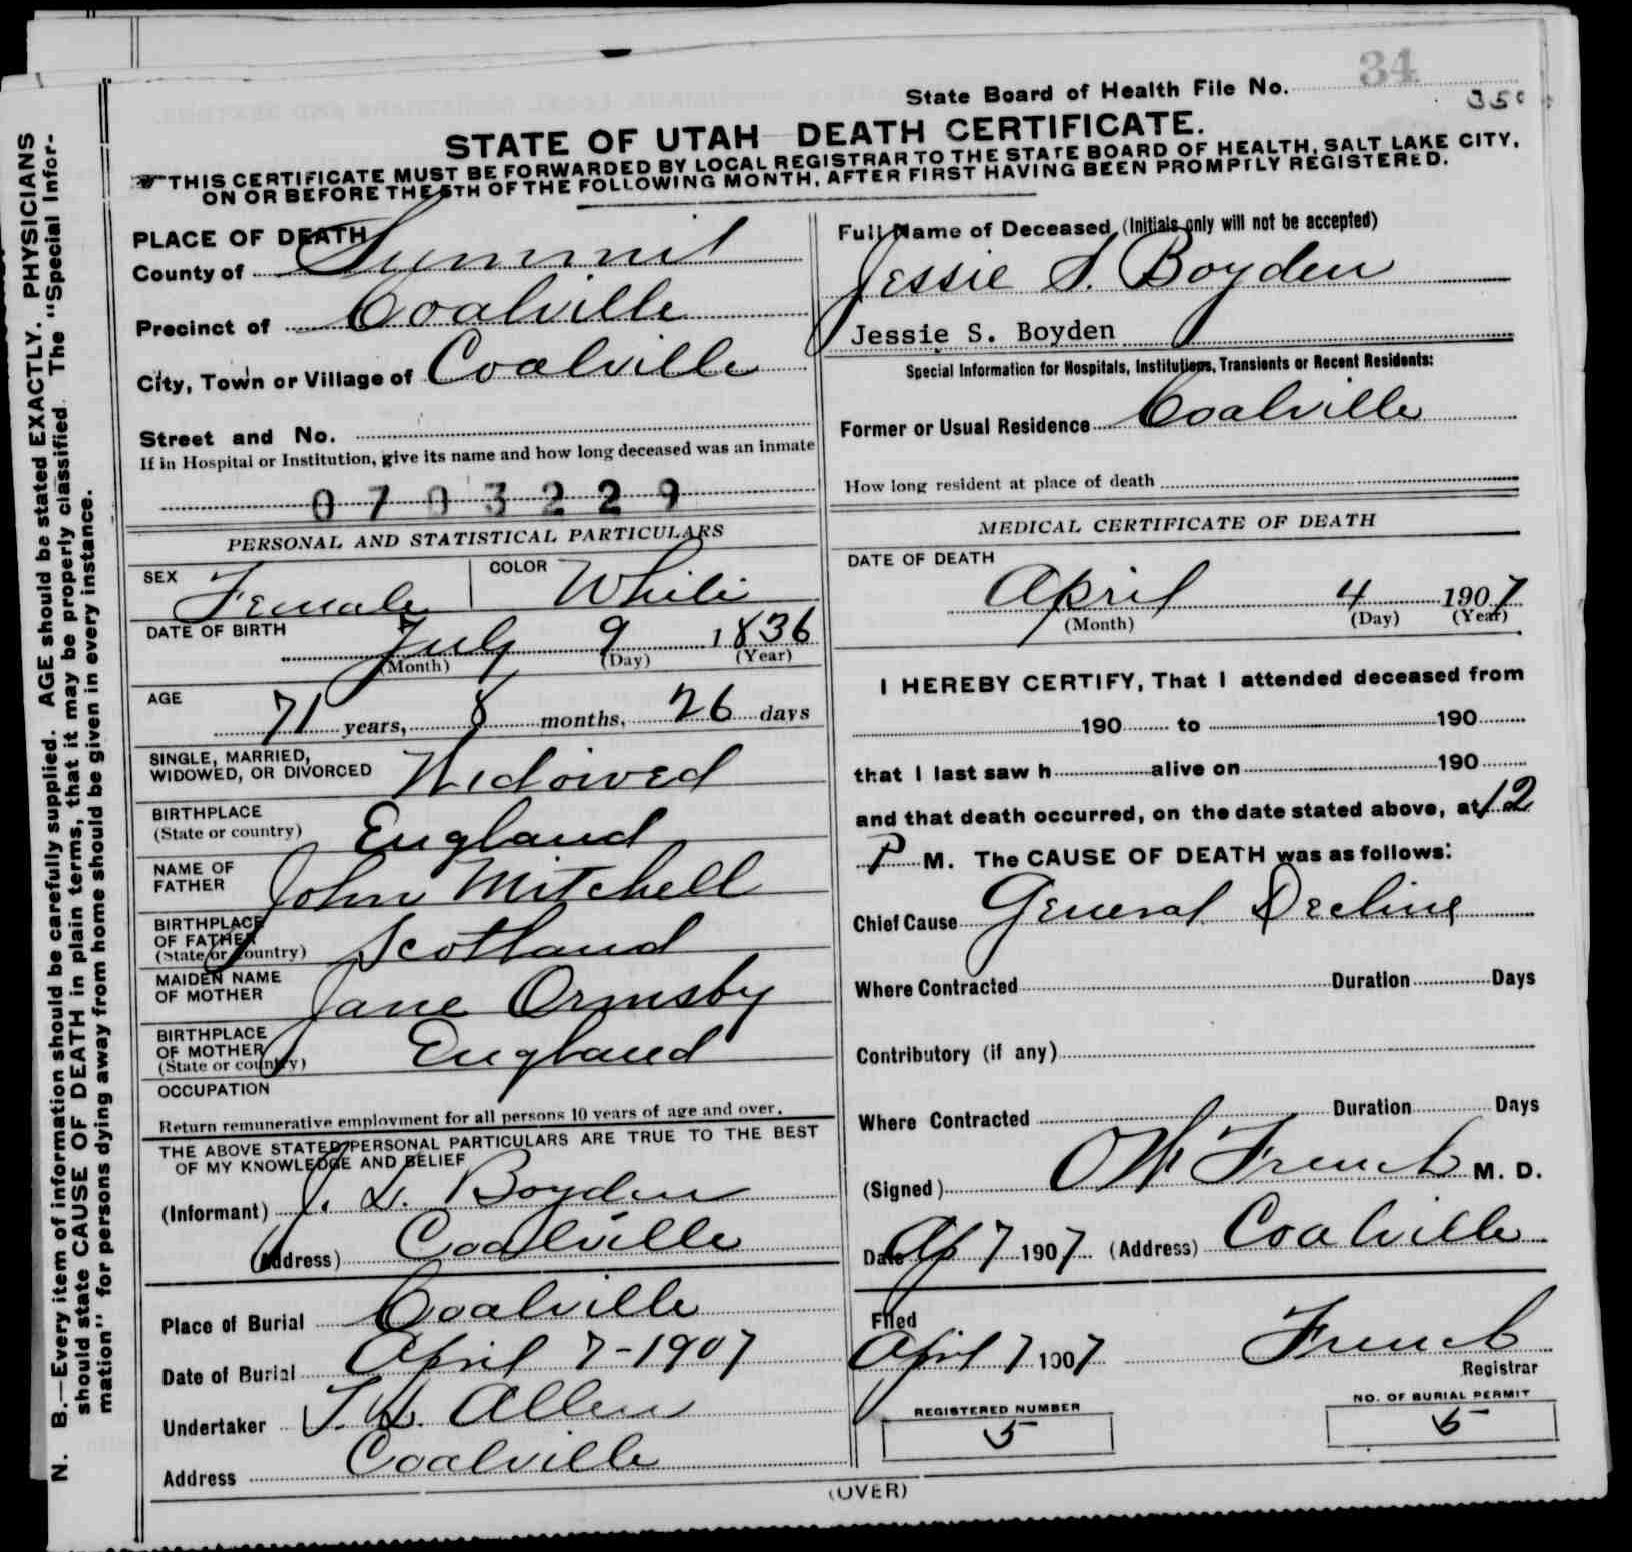 State Board of Health File No. 34
350
STATE OF UTAH DEATH CERTIFICATE.
THIS CERTIFICATE MUST BE FORWARDED BY LOCAL REGISTRAR TO THE STATE BOARD OF HEALTH, SALT LAKE CITY,
ON OR BEFORE THE 5TH OF THE FOLLOWING MONTH, AFTER FIRST HAVING BEEN PROMPTLY REGISTERED.
N. B.—Every item of information should be carefully supplied. AGE should be stated EXACTLY. PHYSICIANS
should state CAUSE OF DEATH in plain terms, that it may be properly classified. The "Special Infor-
mation" for persons dying away from home should be given in every instance.
PLACE OF DEATH
County of Summit
Precinct of Coalville
City, Town or Village of Coalville
Street and No.
If in Hospital or Institution, give its name and how long deceased was an inmate
0703229
PERSONAL AND STATISTICAL PARTICULARS
SEX Female COLOR White
DATE OF BIRTH July 9 1836
(Month) (Day) (Year)
AGE 71 years, 8 months, 26 days
SINGLE, MARRIED,
WIDOWED, OR DIVORCED Widowed
BIRTHPLACE
(State or country) England
NAME OF
FATHER John Mitchell
BIRTHPLACE
OF FATHER
(State or country) Scotland
MAIDEN NAME
OF MOTHER Jane Ormsby
BIRTHPLACE
OF MOTHER
(State or country) England
OCCUPATION
Return remunerative employment for all persons 10 years of age and over.
THE ABOVE STATED PERSONAL PARTICULARS ARE TRUE TO THE BEST
OF MY KNOWLEDGE AND BELIEF
(Informant) J. L. Boyden
(Address) Coalville
Place of Burial Coalville
Date of Burial April 7-1907
Undertaker T. L. Allen
Address Coalville
Full Name of Deceased (Initials only will not be accepted)
Jessie S. Boyden
Jessie S. Boyden
Special Information for Hospitals, Institutions, Transients or Recent Residents:
Former or Usual Residence Coalville
How long resident at place of death
MEDICAL CERTIFICATE OF DEATH
DATE OF DEATH
April 4 1907
(Month) (Day) (Year)
I HEREBY CERTIFY, That I attended deceased from
190 to 190
that I last saw h alive on 190
and that death occurred, on the date stated above, at 12
P M. The CAUSE OF DEATH was as follows:
Chief Cause General Decline
Where Contracted Duration Days
Contributory (if any)
Where Contracted Duration Days
(Signed) French M. D.
Date Ap 7 1907 (Address) Coalville
Filed
April 7 1907 French
Registrar
REGISTERED NUMBER
5
NO. OF BURIAL PERMIT
5
(OVER)